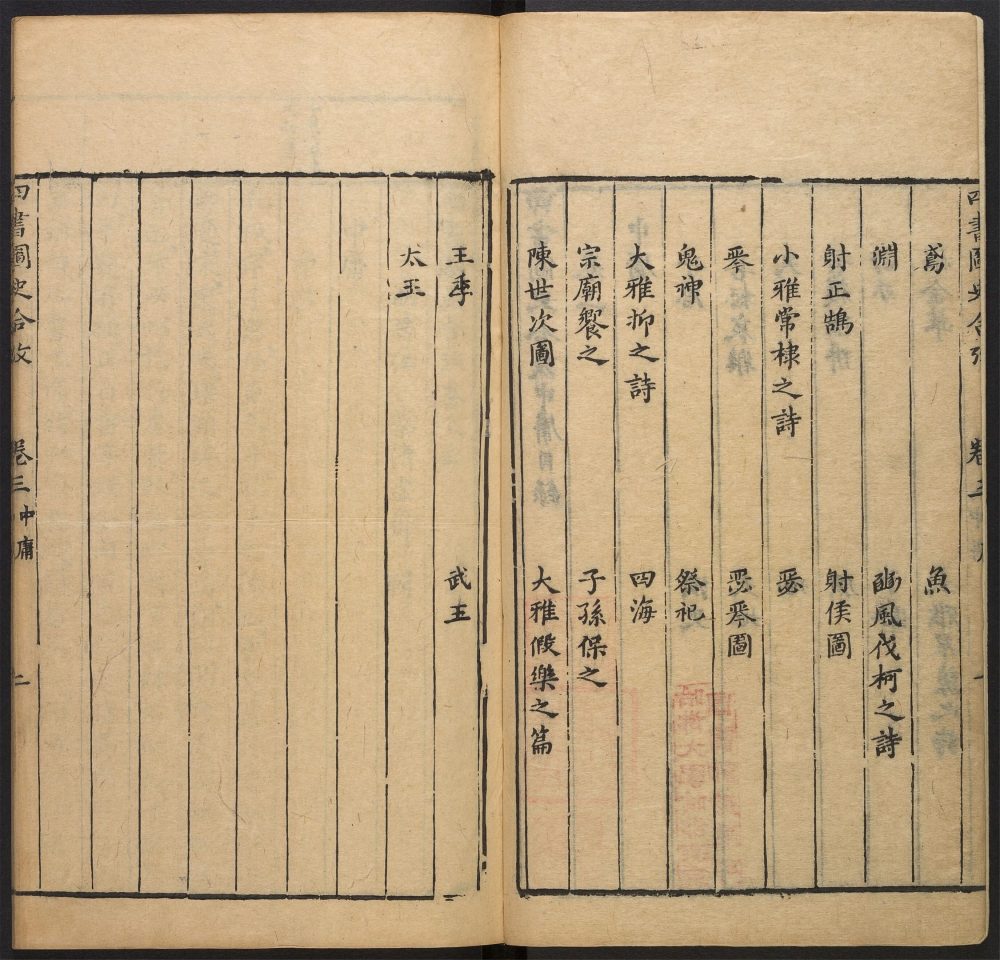 四書圖史合攷 卷三中庸 一
鳶 魚
淵 豳風伐柯之詩
射正鵠 射侯圖
小雅常棣之詩 瑟
琴 瑟琴圖
鬼神 祭祀
大雅抑之詩 四海
宗廟饗之 子孫保之
陳世次圖 大雅假樂之篇
王季 武王
太王
四書圖史合攷 卷三中庸 二